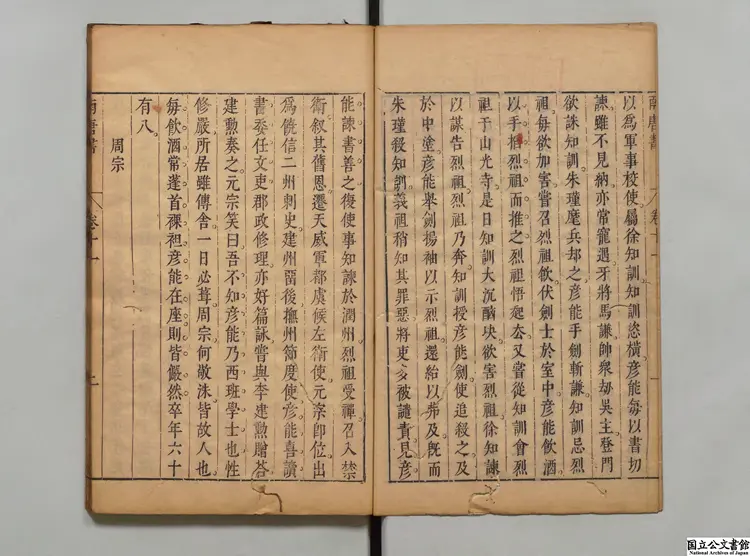 以為軍事校使屬徐知訓知訓恣橫彥能每以書切
諫雖不見納亦常寵遇牙將馬謙帥衆劫吳主登門
欲誅知訓朱瑾麾兵却之彥能手劒斬謙知訓忌烈
祖每欲加害嘗召烈祖飲伏劍士於室中彥能飲酒
以手搯烈祖而推之烈祖悟起去又嘗從知訓會烈
祖于山光寺是日知訓大沉酗决欲害烈祖徐知諫
以謀告烈祖烈祖乃奔知訓授彥能劒使追殺之及
於中塗彥能舉劍揚袖以示烈祖還紿以弗及旣而
朱瑾殺知訓義祖稍知其罪惡將吏多被譴責見彥
能諫書善之復使事知諫於潤州烈祖受禪召入禁
衛叙其舊恩遷天威軍都虞候左衛使元宗卽位出
為饒信二州刺史建州留後撫州節度使彥能喜讀
書委任文吏郡政修理亦好篇詠嘗與李建勲贈荅
建勲奏之元宗笑曰吾不知彥能乃西班學士也性
修嚴所居雖傳舍一日必葺周宗何敬洙皆故人也
每飲酒常蓬首裸袒彥能在座則皆儼然卒年六十
有八
周宗
南唐書
卷十一
国立公文書館
National Archives of Japan